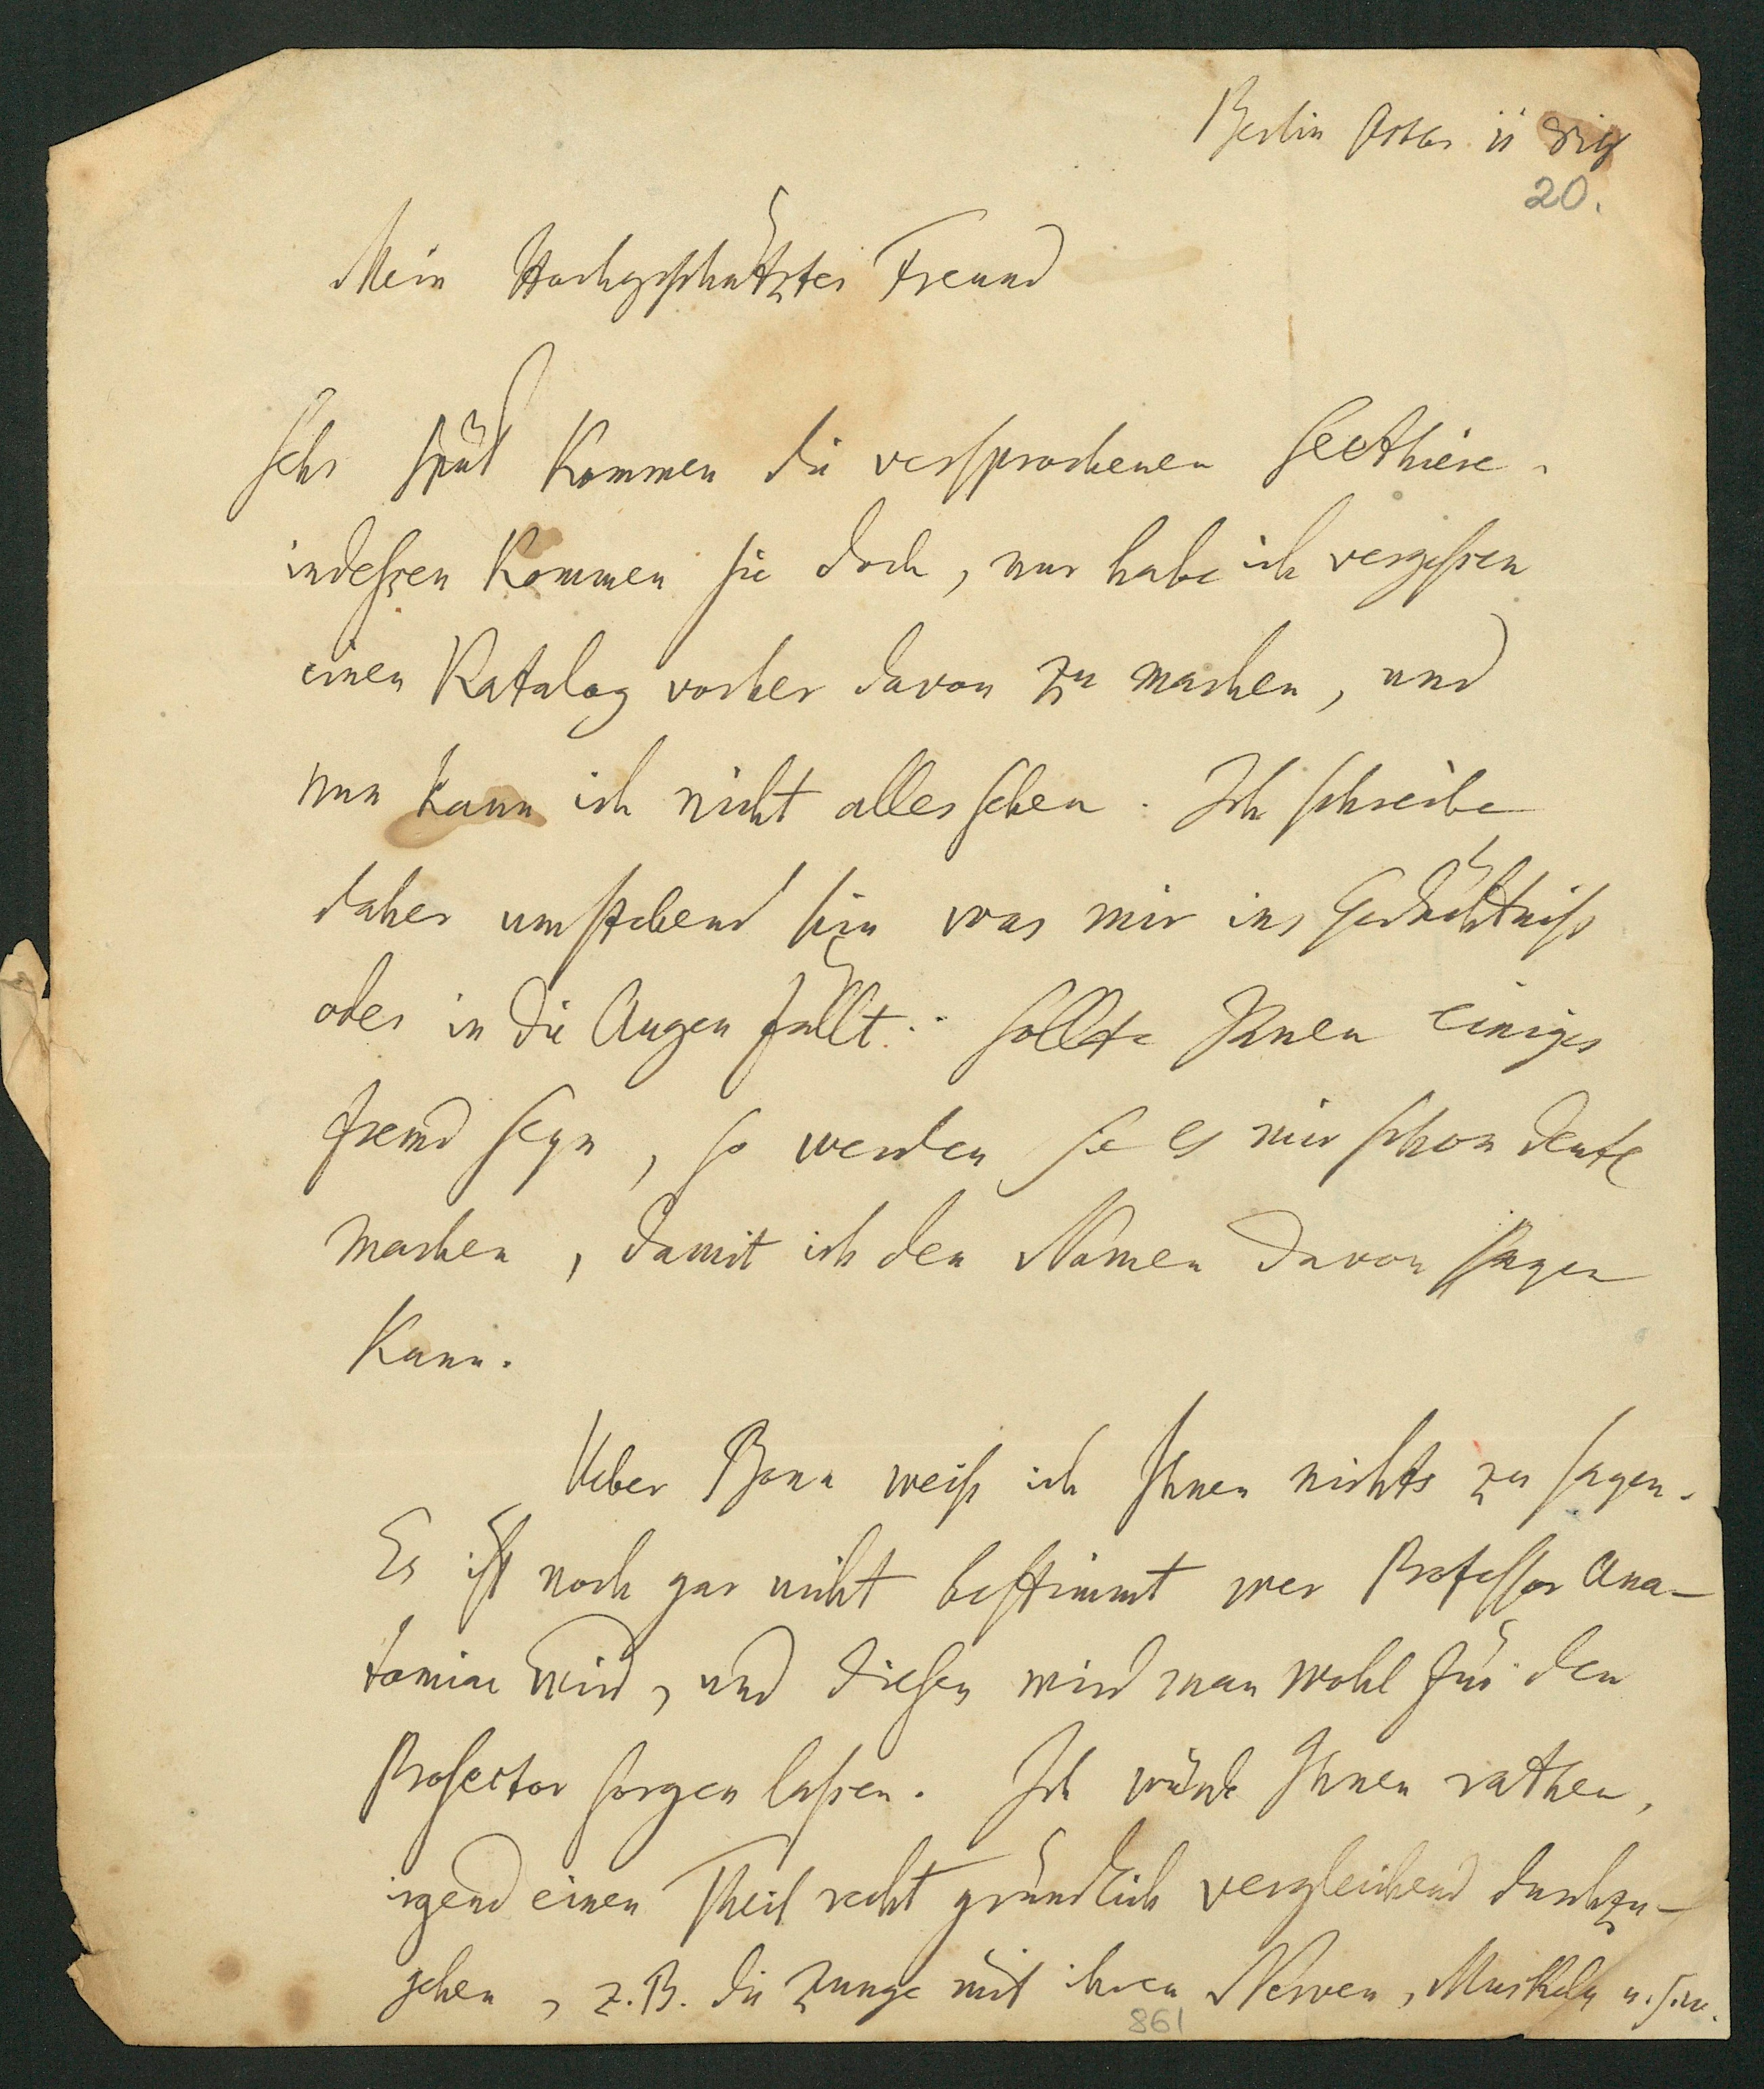 Berlin Octbr 11 819
20.
Mein Hochgeschätzter Freund
Sehr spät kommen die versprochenen Seethiere.
indeßen kommen sie doch, nur habe ich vergeßen
einen Katalog vorher davon zu machen, und
nun kann ich nicht alles sehen. Ich schreibe
daher umstehend hin was mir ins Gedächtniß
oder in die Augen fällt. Sollte Ihnen einiges
fremd seyn, so werden sie es mir schon deutl
machen, damit ich den Namen davon sagen
kann.
Ueber Bonn weiß ich Ihnen nichts zu sagen.
Es ist noch gar nicht bestimmt wer Professor Ana-
tomiae wird, und diesen wird man wohl für den
Prosector sorgen laßen. Ich würde Ihnen rathen,
irgend einen Theil recht gründlich vergleichend durchzu-
gehen, z.B. die Zunge mit ihren Nerven, Muskeln u.s.w.
861